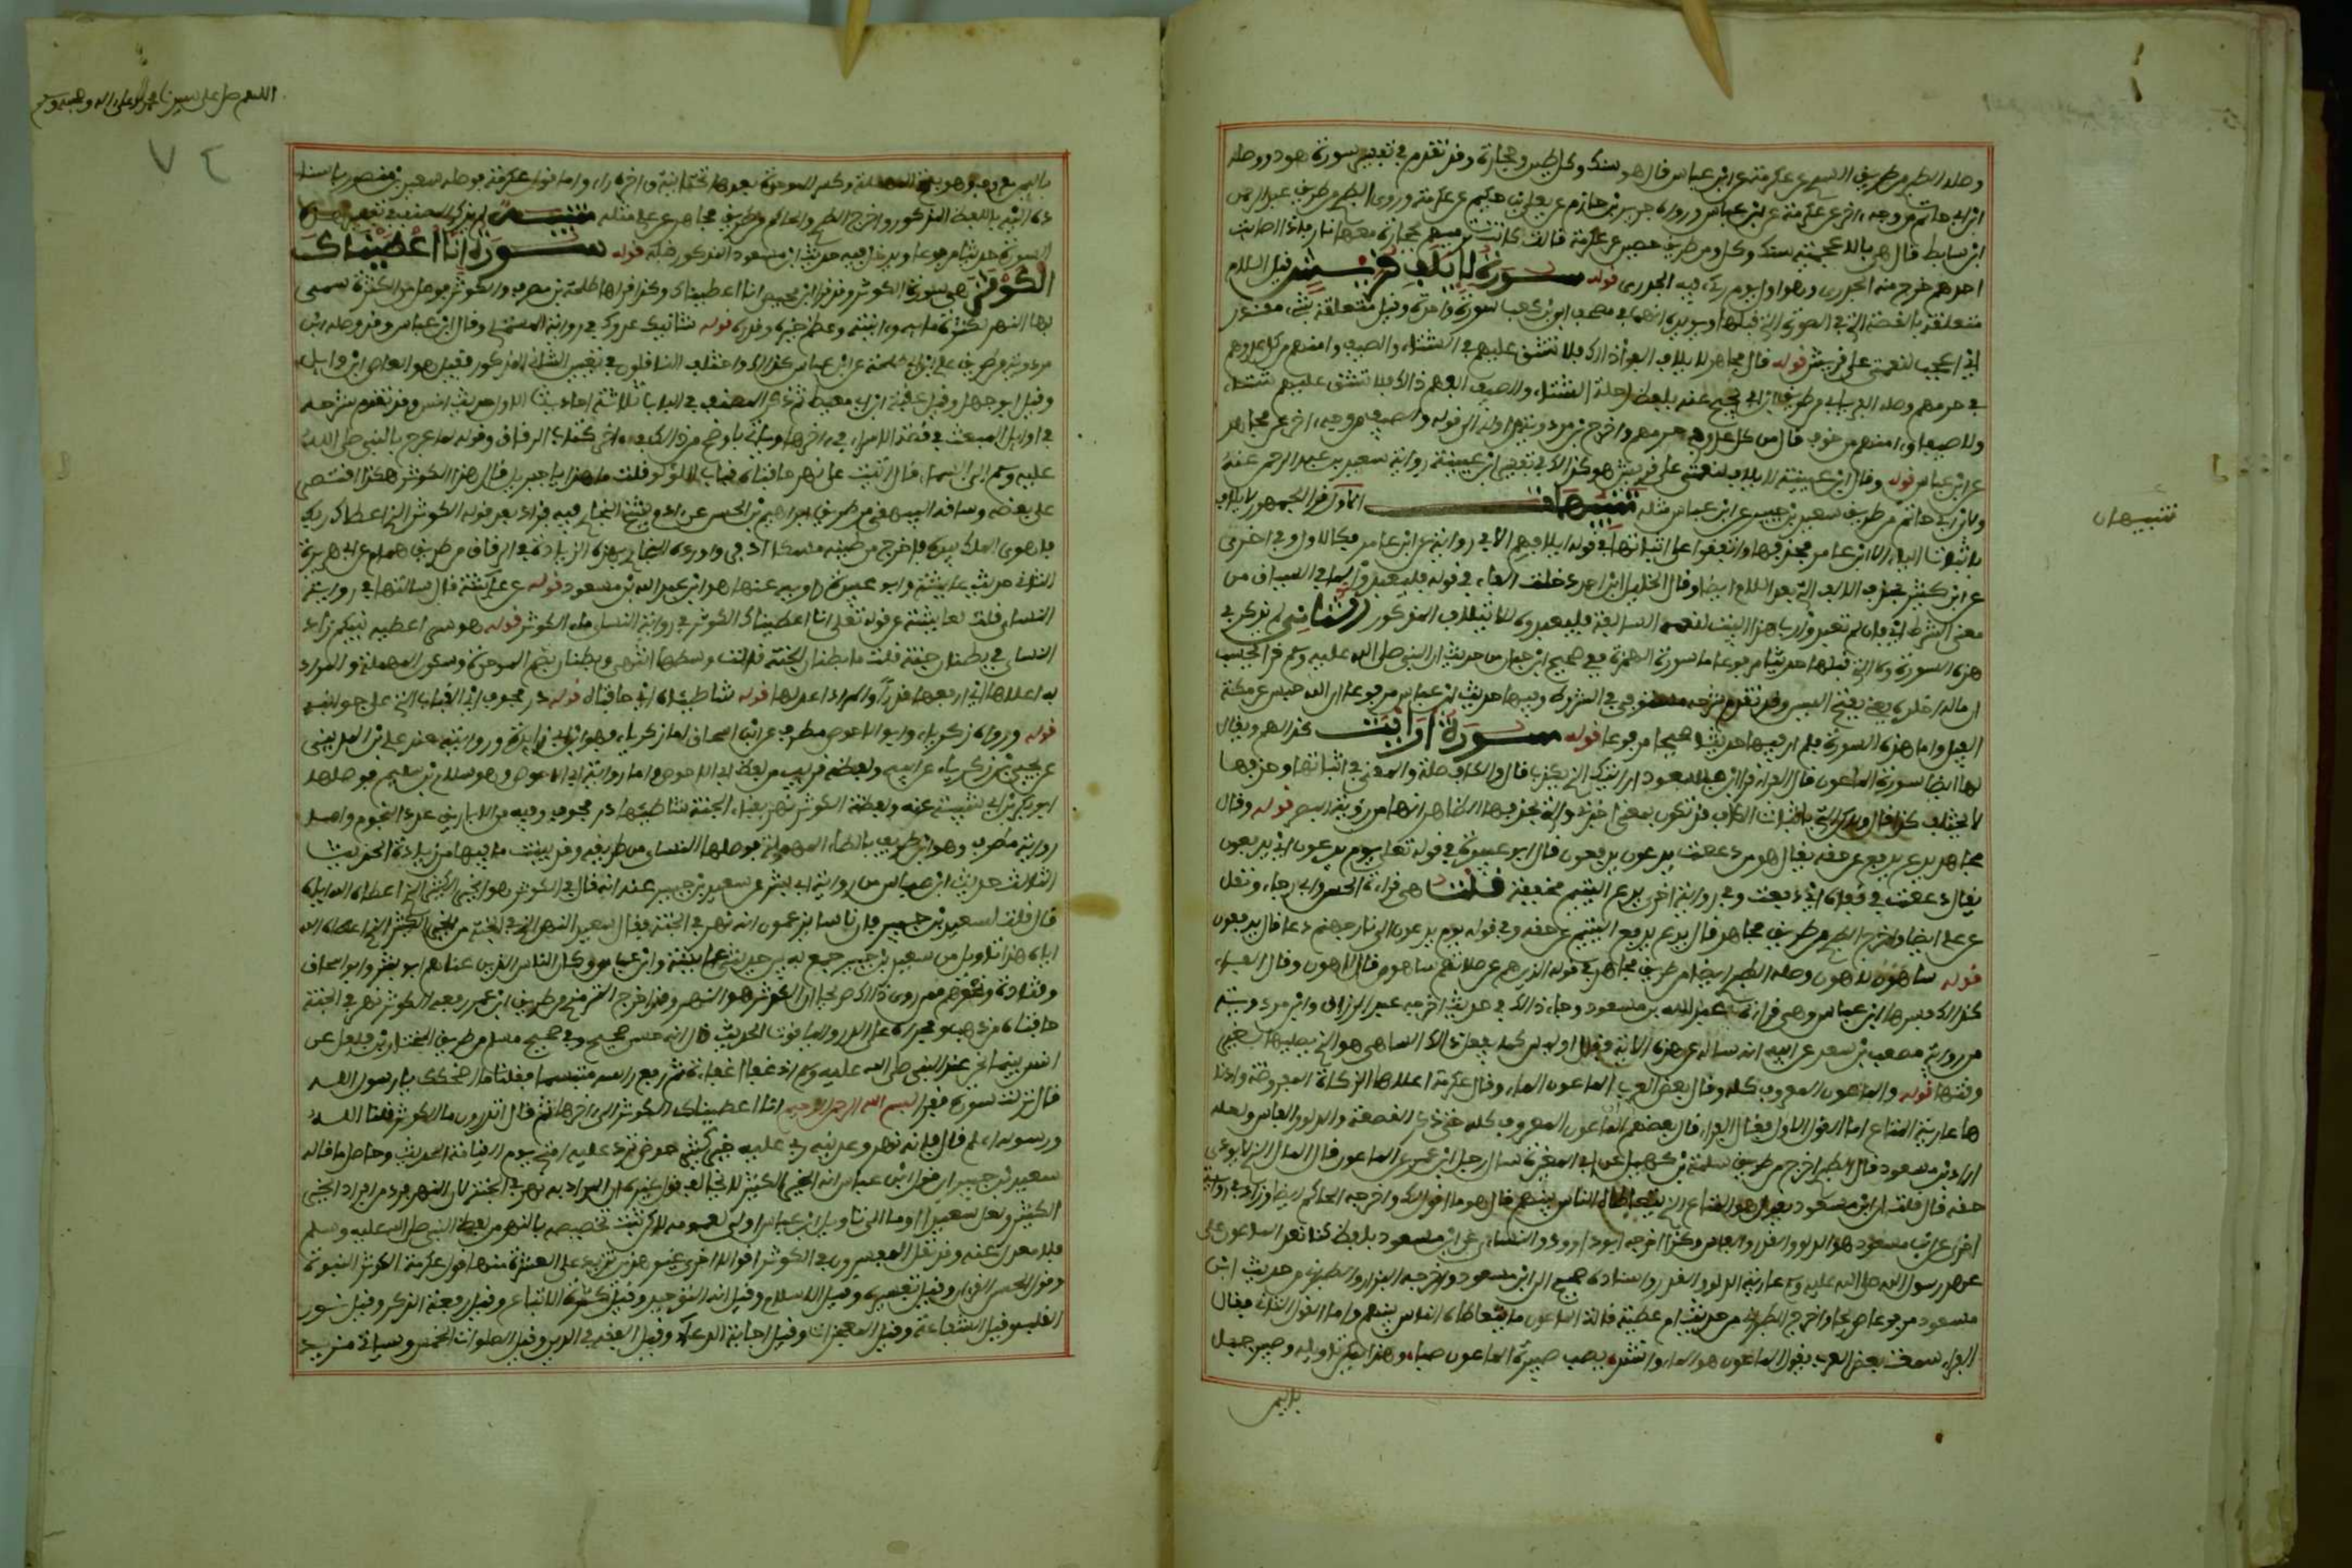 وصله الطبري من طريق السدي عن عكرمة عن ابن عباس قال هو سنك وكل طير وحجارة وقد تقدم في تفسير سورة هود ووصله
ابن ابي حاتم من وجه اخر عن عكرمة عن ابن عباس ورواه جرير بن حازم عن يعلى بن حكيم عن عكرمة وروى الطبري من طريق عبد الرحمن
ابن سابط قال هي بالاعجمية سنك وكل ومن طريق حصين عن عكرمة قال كانت ترميهم بحجارة معها نار فاذا اصابت
احدهم خرج منه الجدري وهو اول يوم ريء فيه الجدري قوله سورة لايلف قريش قيل اللام
متعلقة بالقصة التي في السورة التي قبلها ويويده انهما في مصحف ابي بن كعب سورة واحدة وقيل متعلقة بشيء مقدر
اي اعجب لنعمتي على قريش قوله قال مجاهد لايلاف الفوا ذلك فلا يشق عليهم في الشتاء والصيف وامنهم من كل عدوهم
في حرمهم وصله الفريابي من طريق ابن ابي نجيح عنه بلفظ رحلة الشتاء والصيف الفهم ذلك فلا يشق عليهم شتاء
ولا صيفا وامنهم من خوف قال من كل عدو في حرمهم واخرج ابن مردويه من اوله الى قوله والصيف من وجه اخر عن مجاهد
عن ابن عباس قوله وقال ابن عيينة لايلاف لنعمتي على قريش هو كذلك في تفسير ابن عيينة رواية سعيد بن عبد الرحمن عنه
ولابن ابي حاتم من طريق سعيد بن جبير عن ابن عباس مثله تنبيهان الاول قرا الجمهور لايلاف
باثبات الياء الا ابن عامر فحذفها واتفقوا على اثباتها في قوله ايلافهم الا في رواية عن ابن عامر فكالاول وفي اخرى
عن ابن كثير بحذف الالف التي بعد اللام ايضا وقال الخليل بن احمد دخلت الفاء في قوله فليعبدوا لما في السياق من
معنى الشرط اي فان لم يعبدوا رب هذا البيت لنعمه السابقة فليعبدوه للائتلاف المذكور الثاني لم يذكر في
هذه السورة ولا التي قبلها حديثا مرفوعا فاما سورة الهمزة ففي صحيح ابن حبان من حديث ان النبي صلى الله عليه وسلم قرا يحسب
ان ماله اخلده يعني بفتح السين وفيها حديث ان عباس مرفوعا ان الله حبس عن مكة
الفيل واما هذه السورة فلم ار فيها حديثا صحيحا مرفوعا قوله سورة ارايت كذا لهم ويقال
لها ايضا سورة الماعون قال الفراء قرا ابن مسعود ارايتك الذي يكذب قال والكاف صلة والمعنى في اثباتها وحذفها
لا يختلف كذا قال لكن التي باثبات الكاف قد تكون بمعنى اخبرني والتي بحذفها الظاهر انها من روية البصر قوله وقال
مجاهد يدع يدفع عن حقه يقال هو من دععت يدعون يدفعون قال ابو عبيدة في قوله تعلى يوم يدعون اي يدفعون
يقال دععت في قفاه اي دفعت وفي رواية اخرى يدع اليتيم مخففة قلت هي قراءة الحسن وابي رجاء ونقل
عن علي ايضا واخرج الطبري من طريق مجاهد قال يدع يدفع اليتيم عن حقه وفي قوله يوم يدعون الى نار جهنم دعا قال يدفعون
قوله ساهون لاهون وصله الطبري ايضا من طريق مجاهد في قوله الذين هم عن صلاتهم ساهون قال لاهون وقال الفراء
كذلك فسرها ابن عباس وهي قراءة عبد الله بن مسعود وجاء ذلك في حديث اخرجه عبد الرزاق وابن مردويه
من رواية مصعب بن سعد عن ابيه انه ساله عن هذه الاية قال اوليس كلنا يفعل ذلك الساهي هو الذي يصليها لغير
وقتها قوله والماعون المعروف كله وقال بعض العرب الماعون الماء وقال عكرمة اعلاها الزكاة المفروضة وادنا
ها عارية المتاع اما القول الاول فقال الفراء قال بعضهم الماعون المعروف كله حتى ذكر القصعة والدلو والفاس ولعله
اراد ابن مسعود فان الطبري اخرج من طريق سلمة بن كهيل عن ابي المغيرة سال رجل ابن عمر عن الماعون قال المال الذي لا يودى
حقه قال قلت ان ابن مسعود يقول هو المتاع الذي يتعاطاه الناس بينهم قال هو ما اقول لك واخرجه الحاكم ايضا وزاد في رواية
اخرى عن ابن مسعود هو الدلو والقدر والفاس وكذا اخرجه ابو داوود والنسائي عن ابن مسعود بلفظ كنا نعد الماعون على
عهد رسول الله صلى الله عليه وسلم عارية الدلو والقدر واسناده صحيح الى ابن مسعود واخرجه البزار والطبراني من حديث ابن
مسعود مرفوعا صريحا واخرج الطبراني من حديث ام عطية قالت الماعون ما يتعاطاه الناس بينهم واما القول الثاني فقال
الفراء سمعت بعض العرب يقول الماعون هو الماء وانشد يصب صبيره الماعون صبا وهذا يمكن تاويله وصبير جبل
باليمن
تنبيهان
اللهم صل على سيدنا محمد وعلى اله وصحبه وسلم
٧٢
باليمن معروف وهو بفتح المهملة وكسر الموحدة بعدها تحتانية واخره راء واما قول عكرمة فوصله سعيد بن منصور باسناد
ده اليه باللفظ المذكور واخرج الطبري والحاكم من طريق مجاهد عن علي مثله تنبيه لم يذكر المصنف في تفسير هذه
السورة حديثا مرفوعا ويدخل فيه حديث ابن مسعود المذكور قبله قوله سورة انا اعطيناك
الكوثر هي سورة الكوثر وقد قرا ابن محيصن انا انطيناك وكذا قراها طلحة بن مصرف والكوثر فوعل من الكثرة سمي
بها النهر لكثرة مائه وانيته وعظم قدره وخيره قوله شانئك عدوك في رواية المستملي وقال ابن عباس وقد وصله ابن
مردويه من طريق علي بن ابي طلحة عن ابن عباس كذلك واختلف الناقلون في تعيين الشانئ المذكور فقيل هو العاصي ابن وايل
وقيل ابو جهل وقيل عقبة ابن ابي معيط ثم ذكر المصنف في الباب ثلاثة احاديث الاول حديث انس وقد تقدم شرحه
في اوايل المبعث في قصة الاسراء في اخرها وياتي باوضح من ذلك في اخر كتاب الرقاق وقوله لما عرج بالنبي صلى الله
عليه وسلم الى السماء قال اتيت على نهر حافتاه قباب اللؤلؤ قلت ما هذا يا جبريل قال هذا الكوثر هكذا اقتصر
على بعضه وساقه البيهقي من طريق ابراهيم بن الحسن عن ادم شيخ البخاري فيه فزاد بعد قوله الكوثر الذي اعطاك ربك
فاهوى الملك بيده فاخرج من طينه مسكا اذفر واورده البخاري بهذه الزيادة في الرقاق من طريق همام عن ابي هريرة
الثاني حديث عايشة وابو عبيدة راويه عنها هو ابن عبد الله بن مسعود قوله عن عايشة قال سالتها في رواية
النساي قلت لعايشة عن قوله تعلى انا اعطيناك الكوثر في رواية النساي ما الكوثر قوله هو نهر اعطيه نبيكم زاد
النساي في بطنان الجنة قلت ما بطنان الجنة قالت وسطها انتهى وبطنان بضم الموحدة وسكون المهملة والمراد
به اعلاها اي ارفعها قدرا او المراد اعدلها قوله شاطئاه اي حافتاه قوله در مجوف اي القباب التي على جوانبه
قوله ورواه زكرياء وابو الاحوص ومطرف عن ابي اسحاق اما زكرياء فهو ابن ابي زايدة وروايته عند علي بن المديني
عن يحيى بن زكرياء عن ابيه ولفظه قريب من لفظ ابي الاحوص واما رواية ابي الاحوص وهو سلام بن سليم فوصلها
ابو بكر بن ابي شيبة عنه ولفظه الكوثر نهر بفناء الجنة شاطئاه در مجوف وفيه من الاباريق عدد النجوم واما
رواية مطرف وهو ابن طريف بالطاء المهملة فوصلها النساي من طريقه وقد بينت ما فيها من زيادة الحديث
الثالث حديث ابن عباس من رواية ابي بشر عن سعيد بن جبير عنه انه قال في الكوثر هو الخير الكثير الذي اعطاه الله اياه
قال قلت لسعيد بن جبير فان ناسا يزعمون انه نهر في الجنة فقال سعيد النهر الذي في الجنة من الخير الكثير الذي اعطاه الله
اياه هذا تاويل من سعيد بن جبير جمع به بين حديثي عايشة وابن عباس وكان الناس الذين عناهم ابو بشر وابو اسحاق
وقتادة ونحوهم ممن روى ذلك صريحا ان الكوثر هو النهر وقد اخرج الترمذي من طريق ابن عمر رفعه الكوثر نهر في الجنة
حافتاه من ذهب ومجراه على الدر والياقوت الحديث قال انه حسن صحيح وفي صحيح مسلم من طريق المختار بن فلفل عن
انس بينما نحن عند النبي صلى الله عليه وسلم اذ غفا اغفاءة ثم رفع راسه متبسما فقلنا ما اضحكك يا رسول الله
قال نزلت سورة فقرا بسم الله الرحمن الرحيم انا اعطيناك الكوثر الى اخرها ثم قال اتدرون ما الكوثر قلنا الله
ورسوله اعلم قال فانه نهر وعدنيه ربي عليه خير كثير حوض ترد عليه امتي يوم القيامة الحديث وحاصل ما قاله
سعيد بن جبير ان قول ابن عباس انه الخير الكثير لا يخالف قول غيره ان المراد به نهر في الجنة لان النهر فرد من افراد الخير
الكثير ولعل سعيدا اوما الى ان تاويل ابن عباس اولى لعمومه لكن ثبت تخصيصه بالنهر من لفظ النبي صلى الله عليه وسلم
فلا معدل عنه وقد نقل المفسرون في الكوثر اقوالا اخرى غير هذين تزيد على العشرة منها قول عكرمة الكوثر النبوة
وقول الحسن القران وقيل تفسيره وقيل الاسلام وقيل انه التوحيد وقيل كثرة الاتباع وقيل رفعة الذكر وقيل نور
القلب وقيل الشفاعة وقيل المعجزات وقيل اجابة الدعاء وقيل الفقه في الدين وقيل الصلوات الخمس وسياتي مزيد